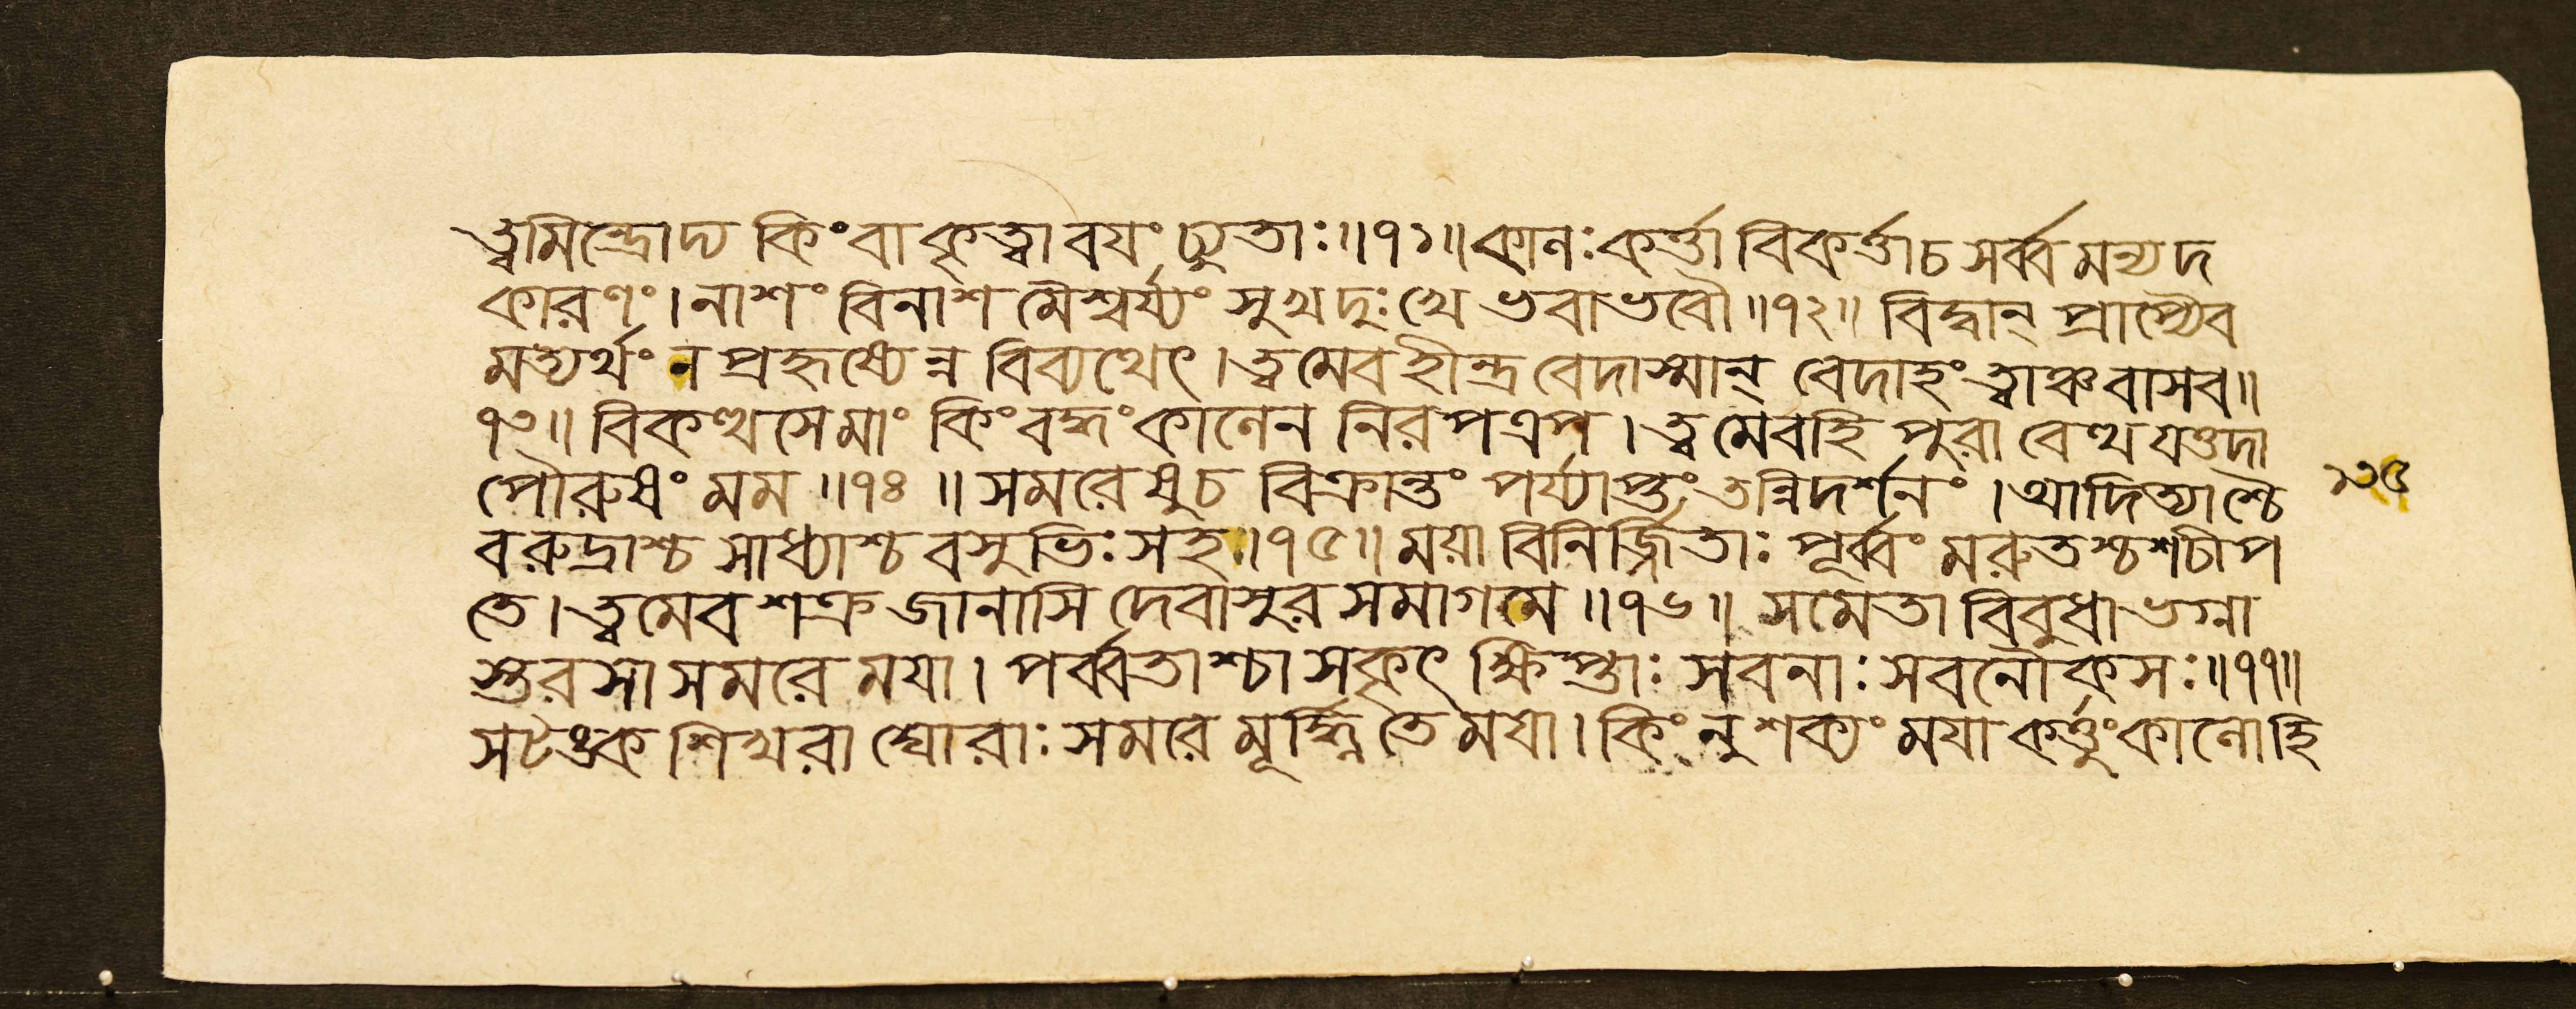 ত্বমিন্দ্রোদ্য কিংবা কৃত্বা বযং চ্যুতাঃ॥৭১॥ কালঃ কর্ত্তা বিকর্ত্তাচ সর্ব্বমন্যদ
কারণং। নাশং বিনাশ মৈশ্বর্য্যং সুখদুঃখে ভবাভবৌ॥৭২॥ বিদ্বান্ প্রাপ্যৈব
মত্যর্থং ন প্রহৃষ্যেন্ন বিব্যথেৎ। ত্বমেবহীন্দ্র বেদাস্মান্ বেদাহং ত্বাঞ্চ বাসব॥
৭৩॥ বিকত্থসে মাং কিং বদ্ধং কালেন নিরপত্রপ। ত্বমেবহি পুরা বেত্থ যত্তদা
পৌরুষং মম॥৭৪॥ সমরেষুচ বিক্রান্তং পর্য্যাপ্তং তন্নিদর্শনং। আদিত্যাশ্চৈ
ব রুদ্রাশ্চ সাধ্যাশ্চ বসুভিঃ সহ॥৭৫॥ ময়া বিনির্জ্জিতাঃ পূর্ব্বং মরুতশ্চ শচীপ
তে। ত্বমেব শক্র জানাসি দেবাসুর সমাগমে॥৭৬॥ সমেতা বিবুধা ভগ্না
স্তরসা সমরে ময়া। পর্ব্বতাশ্চা সকৃৎ ক্ষিপ্তাঃ সবনাঃ সবনৌকসঃ॥৭৭॥
সটঙ্ক শিখরা ঘোরাঃ সমরে মূর্দ্ধ্নি তে ময়া। কিং নু শক্যং ময়া কর্ত্তুং কালোহি
১৩৫